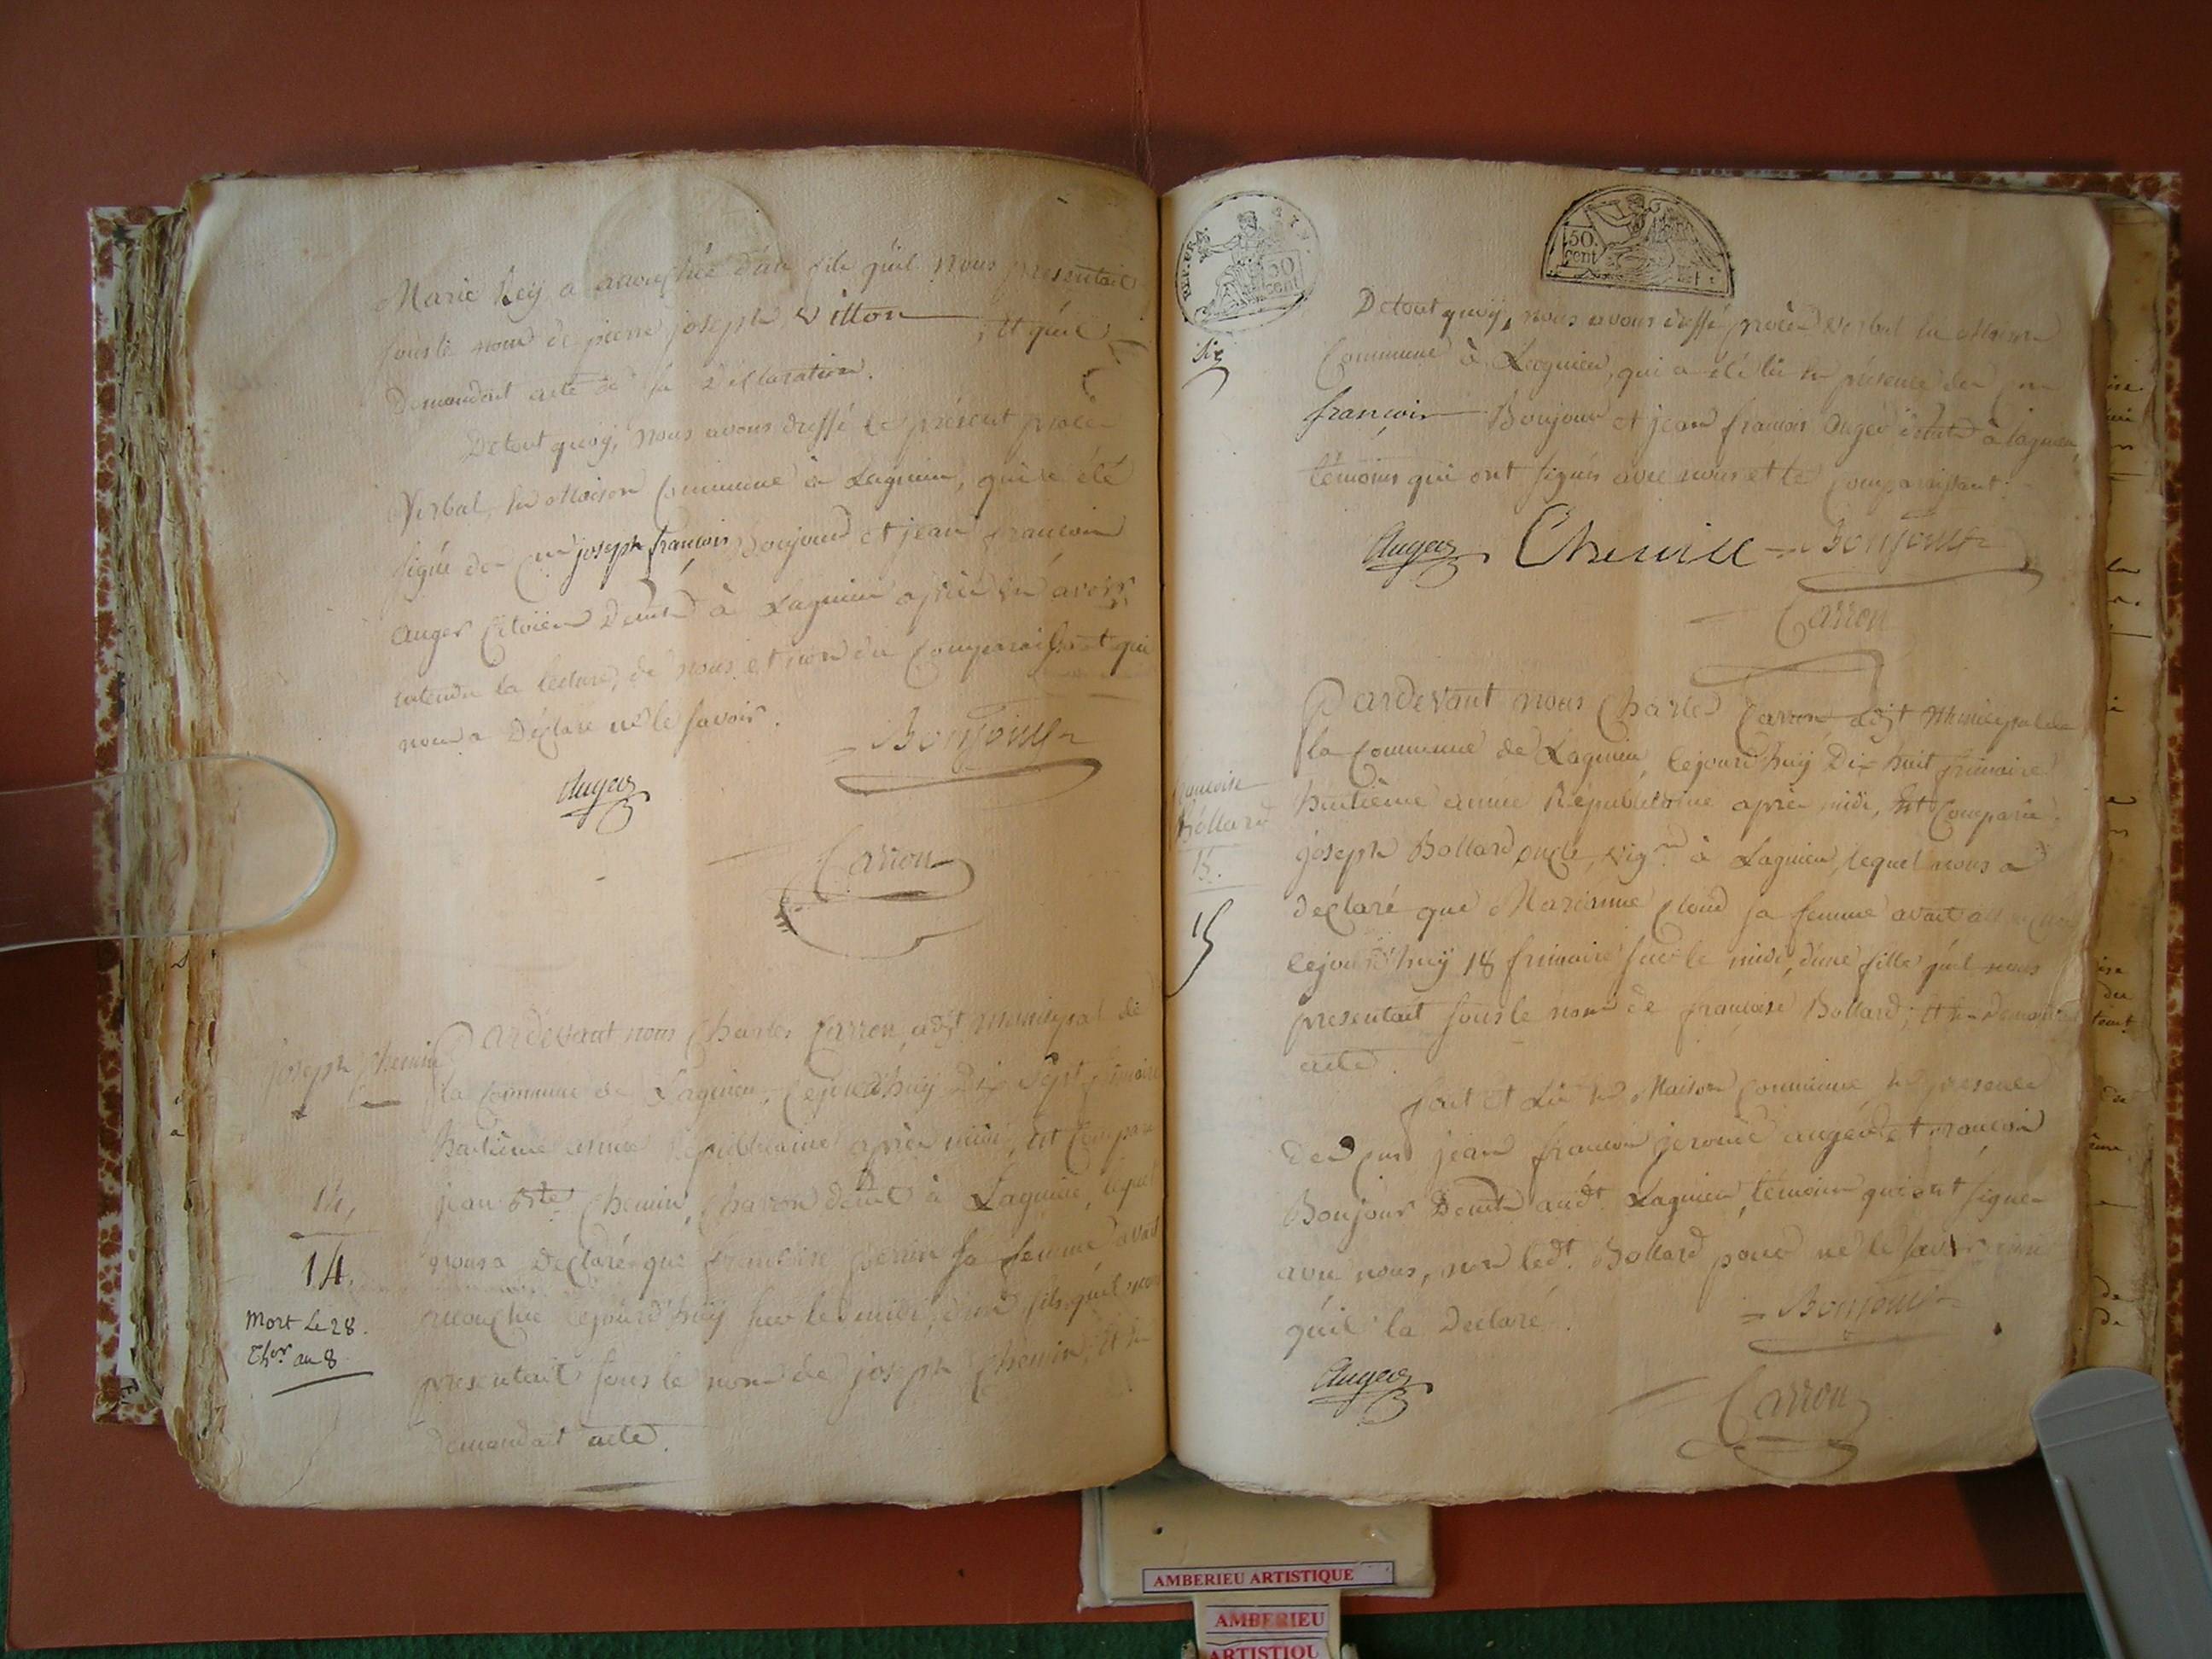 Marie Rey a accouchée d'un fils qu'il nous presentait
sous le nom de pierre joseph Vitton, Et qu'il
Demandait acte de sa Déclaration.
Detout quoy, nous avons dressé le présent procès
Verbal, En Maison Commune à Lagnieu, qui a été
signé des cns joseph françois Boujour et jean francois
Auger Citoiens Demts à Lagnieu après En avoir
entendu la lecture, de nous et non du Comparaissant qui
nous a Déclaré ne le savoir.
Bonjour
Auger
Carron
joseph Chemin
14.
14.
Mort Le 28.
Thor. an 8
Pardevant nous Charles Carron, adjt Municipal de
la Commune de Lagnieu, Cejourd'huy Dix Sept frimaire
huitième année Républicaine après midi, Est Comparu
jean Bte Chemin, Charon demt à Lagnieu, lequel
nous a Declaré que francoise perrin sa femme avait
accouchée cejourd'huy sur le midi, d'un fils qu'il nous
presentait sous le nom de joseph Chemin, Et En
Demandait acte.
REP. FRA.
50
cent
50
cent
Six
Detout quoy, nous avons dressé procès Verbal En Maison
Commune à Lagnieu, qui a été lû En présence des cns
françois Boujour et jean francois Auger demts à lagnieu,
témoins qui ont signés avec nous et le Comparaissant.
Auger Chemin Bonjour
Carron
francoise
Bollard
15.
15
Pardevant nous Charles Carron adjt Municipal de
la Commune de Lagnieu, cejourd'huy Dix huit frimaire
huitième année Républicaine après midi, Est Comparu
joseph Bollard oncle, vign à Lagnieu, lequel nous a
declaré que Marianne sa femme avait
cejourd'huy 18 frimaire sur le midi, d'une fille qu'il nous
presentait sous le nom de francoise Bollard; Et En Demandait
acte.
fait et Lû En Maison Commune, En presence
des cns jean francois jerome auger et francois
Boujour Demts audt. Lagnieu, témoins qui ont signé
avec nous, non ledt. Bollard pour ne le savoir ainsi
qu'il la Declaré.
Bonjour
Auger
Carron
AMBERIEU ARTISTIQUE
AMBERIEU
ARTISTIQU